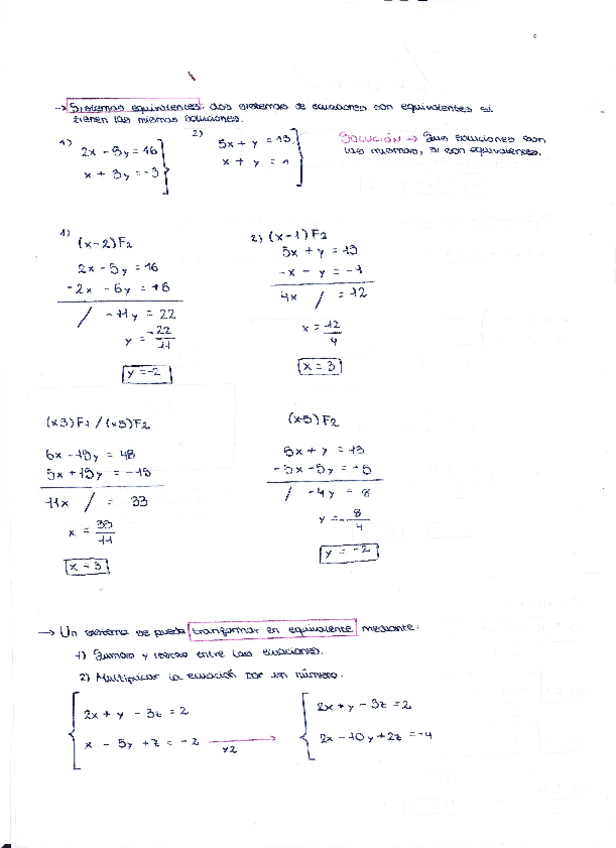 → Sistemas equivalentes: dos sistemas de ecuaciones son equivalentes si
tienen las mismas soluciones.
1) 2x - 5y = 16
x + 3y = -3
2) 5x + y = 13
x + y = 1
SOLUCIÓN → Sus soluciones son
las mismas, si son equivalentes.
1) (x-2)F2
2x - 5y = 16
-2x - 6y = +6
/ -11y = 22
y = -22/11
y = -2
2) (x-1)F2
5x + y = 13
-x - y = -1
4x / = 12
x = 12/4
x = 3
(x3)F1 / (x5)F2
6x - 15y = 48
5x + 15y = -15
11x / = 33
x = 33/11
x = 3
(x-5)F2
5x + y = 13
-5x - 5y = -5
/ -4y = 8
y = - 8/4
y = -2
→ Un sistema se puede transformar en equivalente mediante:
1) Sumas y restas entre las ecuaciones.
2) Multiplicar la ecuación por un número.
2x + y - 3z = 2
x - 5y + z = -2 → x2
2x + y - 3z = 2
2x - 10y + 2z = -4